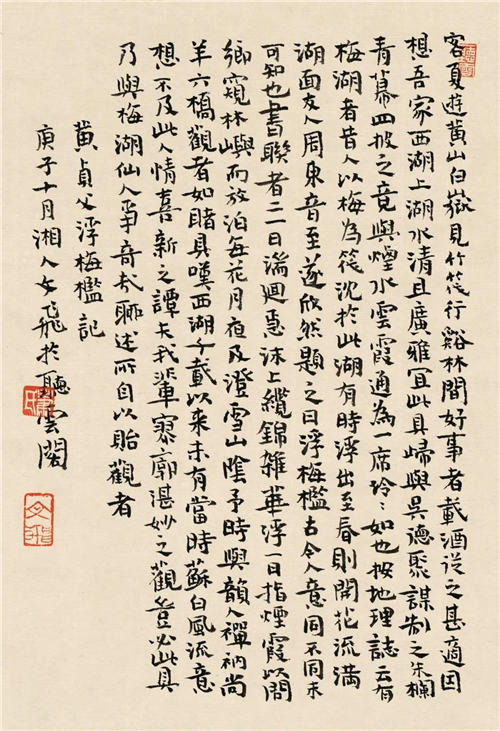 客夏遊黃山白嶽見竹筏行谿林間好事者載酒從之甚適因
想吾家西湖上湖水清且廣雅宜此具歸與吳德聚謀制之朱欄
青幕四披之竟與煙水雲霞通為一席泠〻如也按地理誌云有
梅湖者昔人以梅為筏沈於此湖有時浮出至春則開花流滿
湖面友人周東音至遂欣然題之曰浮梅檻古今人意同不同未
可知也書聯者二一曰湍迴急沫上纜錦雜華浮一曰指煙霞以問
鄉窺林嶼而放泊每花月夜及澄雪山陰予時與韻人禪衲尚
羊六橋觀者如睹具嘆西湖千載以來未有當時蘇白風流意
想不及此人情喜新之譚夫我輩寥廓湛妙之觀豈必此具
乃與梅湖仙人爭奇哉聊述所自以貽觀者
黃貞父浮梅檻記
庚子十月湘人文飛於聽雲閣
文飛